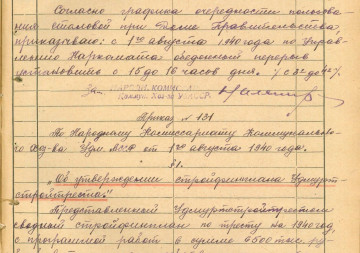 Согласно графика очередности пользова-
ния столовой при Доме Правительства,
приказываю: с 1го августа 1940 года по Управ-
лению Наркомата обеденный перерыв
установить с 15 до 16 часов дня.
Приказ № 131
По Народному Комиссариату Коммунально-
го Хоз-ва Удм. АССР от 1го августа 1940 года.
§1.
„Об утверждении стройфинплана Удмурт-
стройтреста."
Представленный Удмуртстройтрестом
сводный стройфинплан по тресту на 1940 год,
с программой работ в сумме 6500 тыс. руб